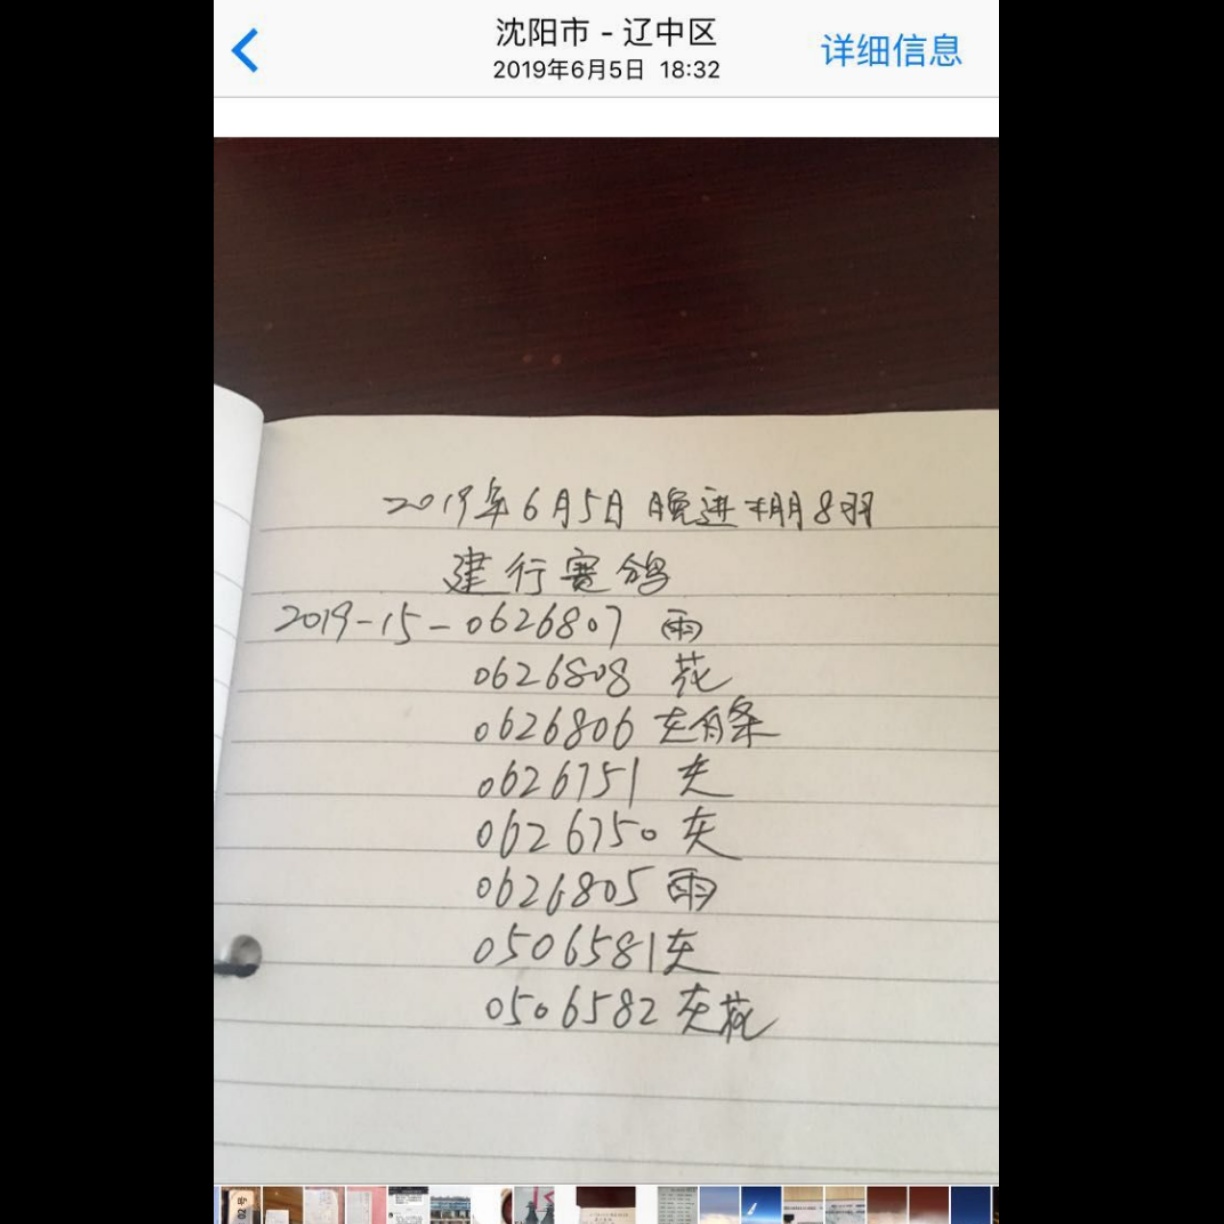 沈阳市 - 辽中区
2019年6月5日 18:32
详细信息
2019年6月5日晚进棚8羽
建行赛鸽
2019-15-0626807 雨
0626808 花
0626806 灰白条
0626751 灰
0626750 灰
0626805 雨
0506581 灰
0506582 灰花